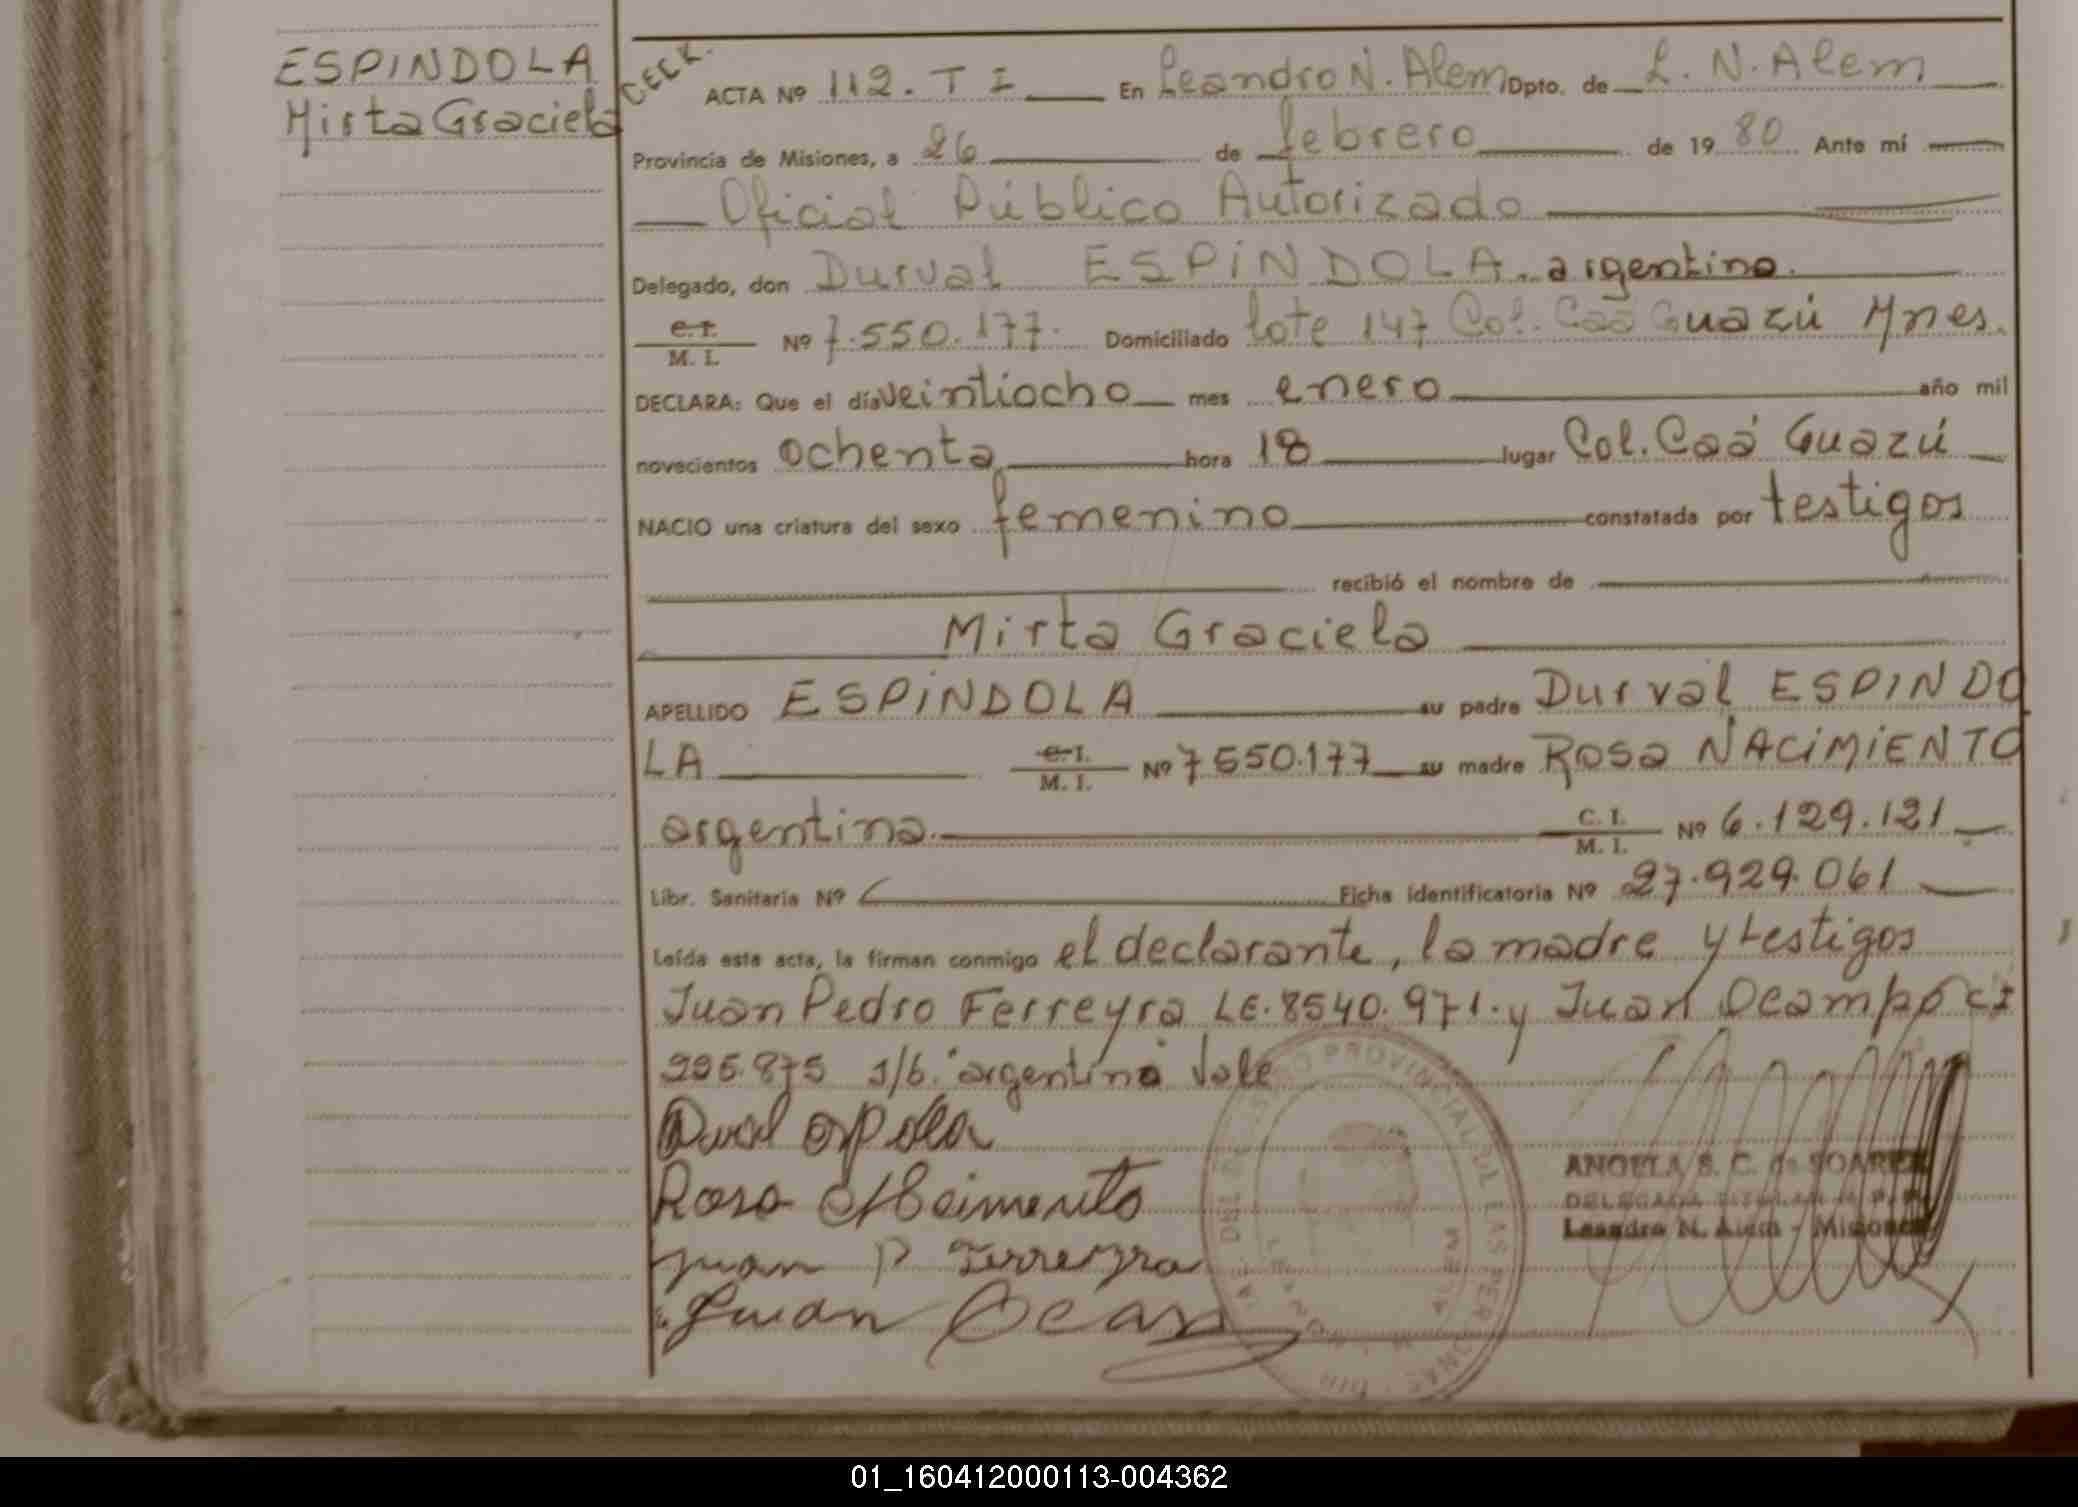 ESPINDOLA
Mirta Graciela
CECK.
ACTA Nº 112. T I En Leandro N. Alem Dpto. de L. N. Alem
Provincia de Misiones, a 26 de febrero de 1980 Ante mí
Oficial Público Autorizado
Delegado, don Durval ESPINDOLA. argentino.
C.I. / M. I. Nº 7.550.177. Domiciliado lote 147 Col. Caá Guazú Mnes.
DECLARA: Que el día veintiocho mes enero año mil
novecientos ochenta hora 18 lugar Col. Caá Guazú
NACIO una criatura del sexo femenino constatada por testigos
recibió el nombre de
Mirta Graciela
APELLIDO ESPINDOLA su padre Durval ESPINDO
LA C.I. / M. I. Nº 7550.177 su madre Rosa NACIMIENTO
argentina. C. I. / M. I. Nº 6.129.121
Libr. Sanitaria Nº Ficha identificatoria Nº 27.929.061
Leída esta acta, la firman conmigo el declarante, la madre y testigos
Juan Pedro Ferreyra LE. 8540.971. y Juan Ocampo CI
295.875 s/b. argentino Vale
Rosa
Juan P Ferreyra
Juan
REGISTRO PROVINCIAL DE LAS PERSONAS
LEANDRO N. ALEM
ANGELA S. C. de SOAREZ
DELEGADA TITULAR
Leandro N. Alem - Misiones
01_160412000113-004362